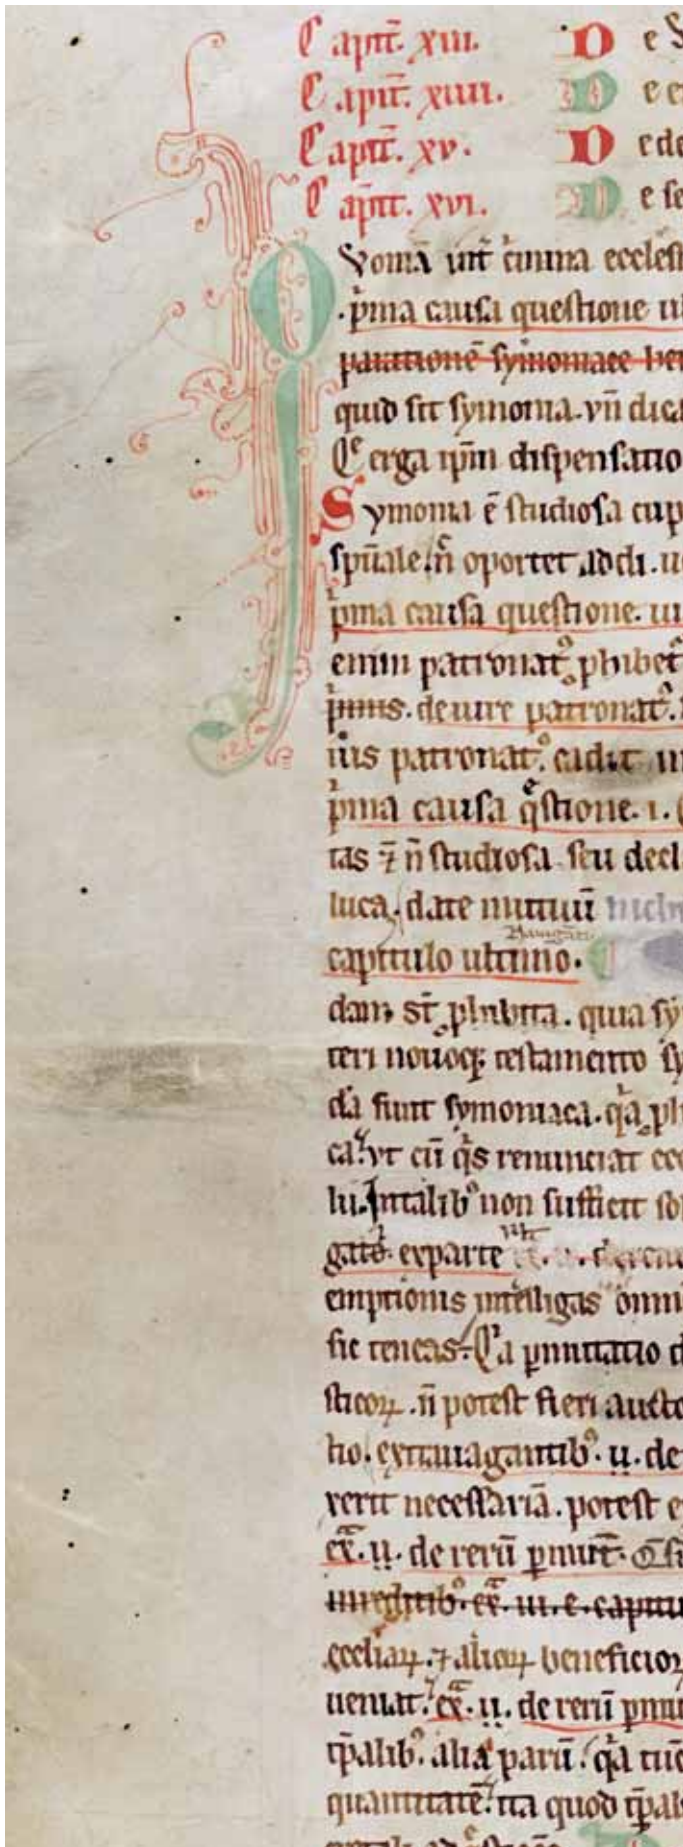 Capit̄. xiii. D e S
Capit̄. xiiii. D e e
Capit̄. xv. D e de
Capit̄. xvi. D e se
Qvoniā int̄ c̍mina eccleſ
.p̍ma cauſa queſtione u
paratione ſẏmoniace he
quid ſit ſymonia. vn̄ dica
erga ip̄m diſpenſatio
Sẏmonia ē ſtudioſa cup
ſpūale. n̄ oportet addi. u
p̍ma cauſa queſtione. iii
enim patronatꝰ ꝓhibet̍
p̍mis. de iure patronatꝰ.
ius patronatꝰ. cadit in
p̍ma cauſa q̄ſtione. i.
tas ⁊ n̄ ſtudioſa ſeu decl
luca. date mutuū nich
capitulo ultimo.
dam ſt̄ ꝓhibita. quia ſy
teri nouoq; teſtamento ſy
dā ſunt ſymoniaca. q̍a ꝓh
ca. vt cū q̍s renunciat ecc
lii. In talibꝰ non ſufficit ſo
ex parte
emptionis intelligas omni
ſic teneas. Qa p̱mutatio d
ſticoꝝ. n̄ poteſt fieri aucto
lio. extrauagantibꝰ. ii. de
rerit neceſſariā. poteſt e
ex̄. ii. de rerū p̱mut̄. ſi
ex̄. iii. e. capitu
eccliaꝝ. ⁊ alioꝝ beneficioꝝ
ueniat. ex̄. ii. de rerū p̱mu
alia parū. q̍a tūc
quantitatē. ita quod